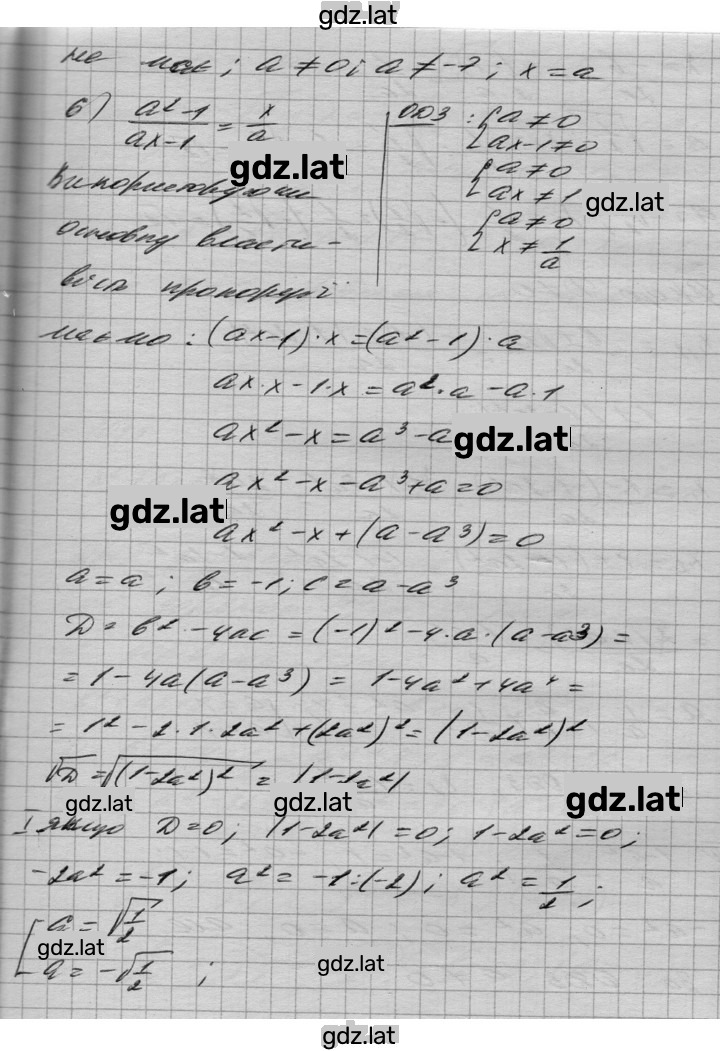 gdz.lat
не має; a ≠ 0; a ≠ -?; x = a
б) (a²-1)/(ax-1) = x/a
ОДЗ: { a ≠ 0
{ ax-1 ≠ 0
{ a ≠ 0
{ ax ≠ 1
{ a ≠ 0
{ x ≠ 1/a
gdz.lat
gdz.lat
Використовуючи
основну власти-
вість пропорції
маємо: (ax-1)·x = (a²-1)·a
ax·x - 1·x = a²·a - a·1
ax² - x = a³ - a
gdz.lat
ax² - x - a³ + a = 0
gdz.lat
ax² - x + (a - a³) = 0
a = a; в = -1; c = a - a³
D = в² - 4ac = (-1)² - 4·a·(a - a³) =
= 1 - 4a(a - a³) = 1 - 4a² + 4a⁴ =
= 1² - 2·1·2a² + (2a²)² = (1-2a²)²
√D = √(1-2a²)² = |1-2a²|
gdz.lat
gdz.lat
gdz.lat
I якщо D = 0; |1-2a²| = 0; 1-2a² = 0;
-2a² = -1; a² = -1:(-2); a² = 1/2;
[ a = √1/2
gdz.lat
[ a = -√1/2 ;
gdz.lat
gdz.lat